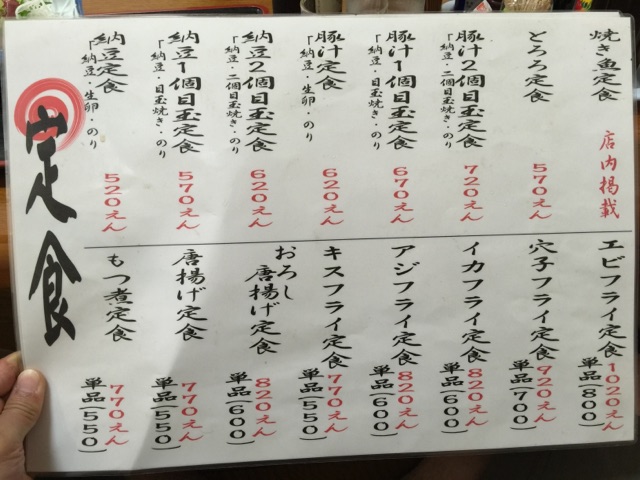 焼き魚定食 店内掲載
とろろ定食 570えん
豚汁2個目玉定食 720えん
「納豆・二個目玉焼き・のり
豚汁1個目玉定食 670えん
「納豆・目玉焼き・のり
豚汁定食 620えん
「納豆・生卵・のり
納豆2個目玉定食 620えん
「納豆・二個目玉焼き・のり
納豆1個目玉定食 570えん
「納豆・目玉焼き・のり
納豆定食 520えん
「納豆・生卵・のり
エビフライ定食 1020えん
単品(800)
穴子フライ定食 920えん
単品(700)
イカフライ定食 820えん
単品(600)
アジフライ定食 820えん
単品(600)
キスフライ定食 770えん
単品(550)
おろし
唐揚げ定食 820えん
単品(600)
唐揚げ定食 770えん
単品(550)
もつ煮定食 770えん
単品(550)
定食